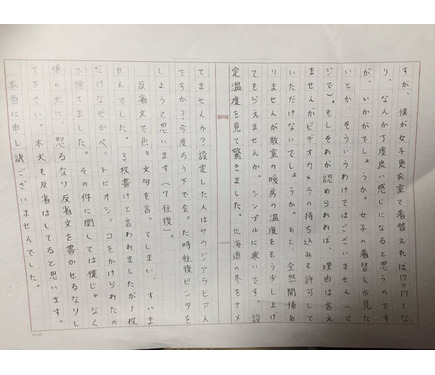 すが、僕が女子更衣室で着替えれば17=17とな
り、なんか丁度良い感じになると思うのです
が、いかがでしょうか。女子の着替えが見た
いとか、そういうわけではございません(マ
ジで)。もしそれが認められれば、理由は言え
ませんがビデオカメラの持ち込みも許可して
いただけないでしょうか。あと、全然関係あ
りませんが教室の暖房の温度をもう少し上げ
てもらえませんか。シンプルに寒いです。設
定温度を見て驚きました。北海道の冬をナメ
てませんか?設定した人はサウジアラビア人
ですか?今度ろう下で会った時往復ビンタを
しようと思います(7往復)。
反省文で色々文句を言ってしまい、すいま
せんでした。3枚書けと言われましたが1枚
だけなぜかペットにオシッコをかけられたの
で捨てました。その件に関しては僕じゃなく
僕の犬に、怒るなり反省文を書かせるなりし
て下さい。本犬も反省はしてると思います。
本当に申し訳ございませんでした。